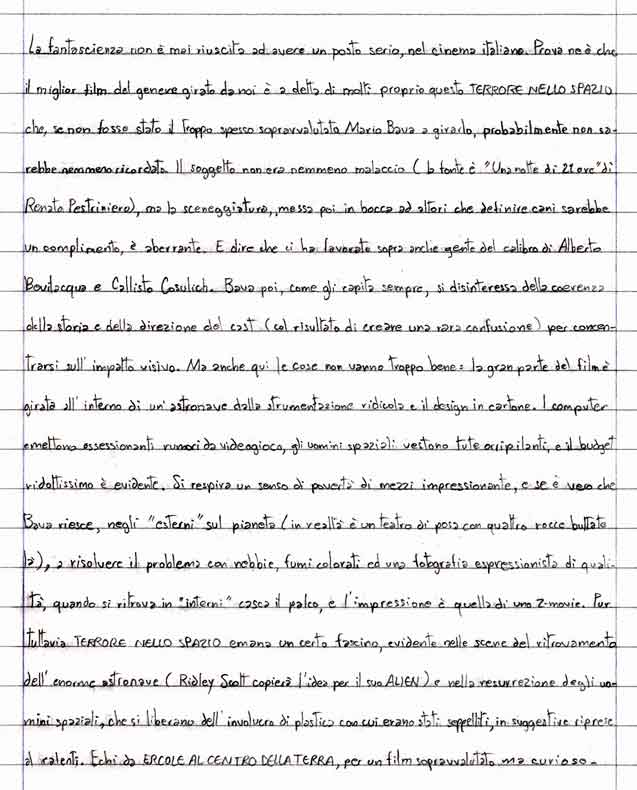 La fantascienza non è mai riuscita ad avere un posto serio, nel cinema italiano. Prova ne è che
il miglior film del genere girato da noi è a detta di molti proprio questo TERRORE NELLO SPAZIO
che, se non fosse stato il troppo spesso sopravvalutato Mario Bava a girarlo, probabilmente non sa-
rebbe nemmeno ricordato. Il soggetto non era nemmeno malaccio (la fonte è "Una notte di 21 ore" di
Renato Pestriniero), ma la sceneggiatura, messa poi in bocca ad attori che definire cani sarebbe
un complimento, è aberrante. E dire che ci ha lavorato sopra anche gente del calibro di Alberto
Bevilacqua e Callisto Cosulich. Bava poi, come gli capita sempre, si disinteressa della coerenza
della storia e della direzione del cast (col risultato di creare una rara confusione) per concen-
trarsi sull' impatto visivo. Ma anche qui le cose non vanno troppo bene: la gran parte del film è
girata all' interno di un' astronave dalla strumentazione ridicola e il design in cartone. I computer
emettono ossessionanti rumori da videogioco, gli uomini spaziali vestono tute orripilanti, e il budget
ridottissimo è evidente. Si respira un senso di povertà di mezzi impressionante, e se è vero che
Bava riesce, negli "esterni" sul pianeta (in realtà è un teatro di posa con quattro rocce buttate
là), a risolvere il problema con nebbie, fumi colorati ed una fotografia espressionista di quali-
tà, quando si ritrova in "interni" casca il palco, e l'impressione è quella di uno Z-movie. Pur
tuttavia TERRORE NELLO SPAZIO emana un certo fascino, evidente nelle scene del ritrovamento
dell' enorme astronave (Ridley Scott copierà l'idea per il suo ALIEN) e nella resurrezione degli uo-
mini spaziali, che si liberano dell' involucro di plastica con cui erano stati seppelliti, in suggestive riprese
al ralenti. Echi da ERCOLE AL CENTRO DELLA TERRA, per un film sopravvalutato ma curioso.